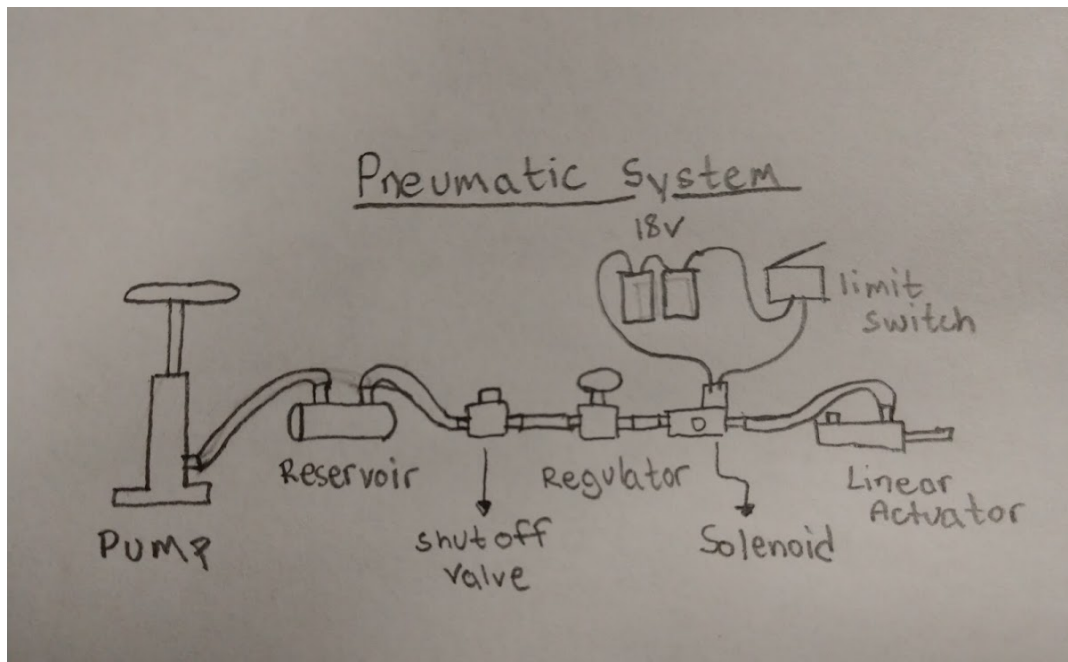 Pneumatic System
18V
limit
switch
Reservoir
Regulator
Linear
Actuator
Pump
shut off
valve
Solenoid